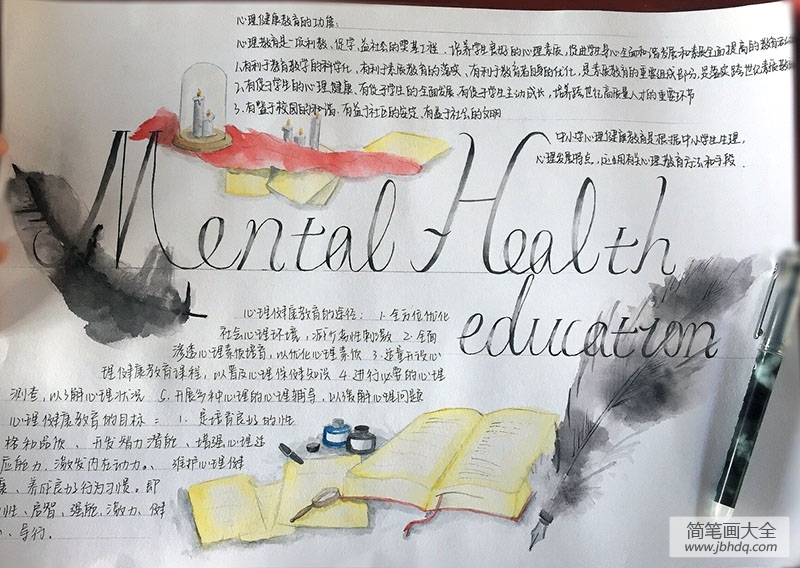 心理健康教育的功能：
心理教育是一项利教、促学、益社会的奠基工程、培养学生良好的心理素质，促进学生身心全面和谐发展和素质全面提高的教育活动
1.有利于教育教学的科学化，有利于素质教育的落实、有利于教育者自身的优化，是素质教育的重要组成部分，是落实跨世纪素质教
2.有促于学生的心理健康、有促于学生的全面发展，有促于学生主动成长，培养跨世纪高质量人才的重要环节
3.有益于校园的和谐、有益于社区的安定、有益于社会的文明
中小学心理健康教育是根据中小学生生理，
心理发展特点，运用有关心理教育方法和手段.
Mental Health
education
心理健康教育的途径： 1.全方位优化
社会心理环境，减少劣性刺激 2.全面
渗透心理素质培育，以优化心理素质 3.
理健康教育课程，以普及心理保健知识 4.进行必要的心理
测查，以了解心理状况 5.开展多种心理的心理辅导，以缓解心理问题
心理健康教育的目标： 1.是培育良好的性
格和品质、开发智力潜能、增强心理适
应能力、激发内在动力。、维护心理健
康、养成良好行为习惯。即
性、启智、强能、激力、健
、导行.
简笔画大全
www.jbhdq.com